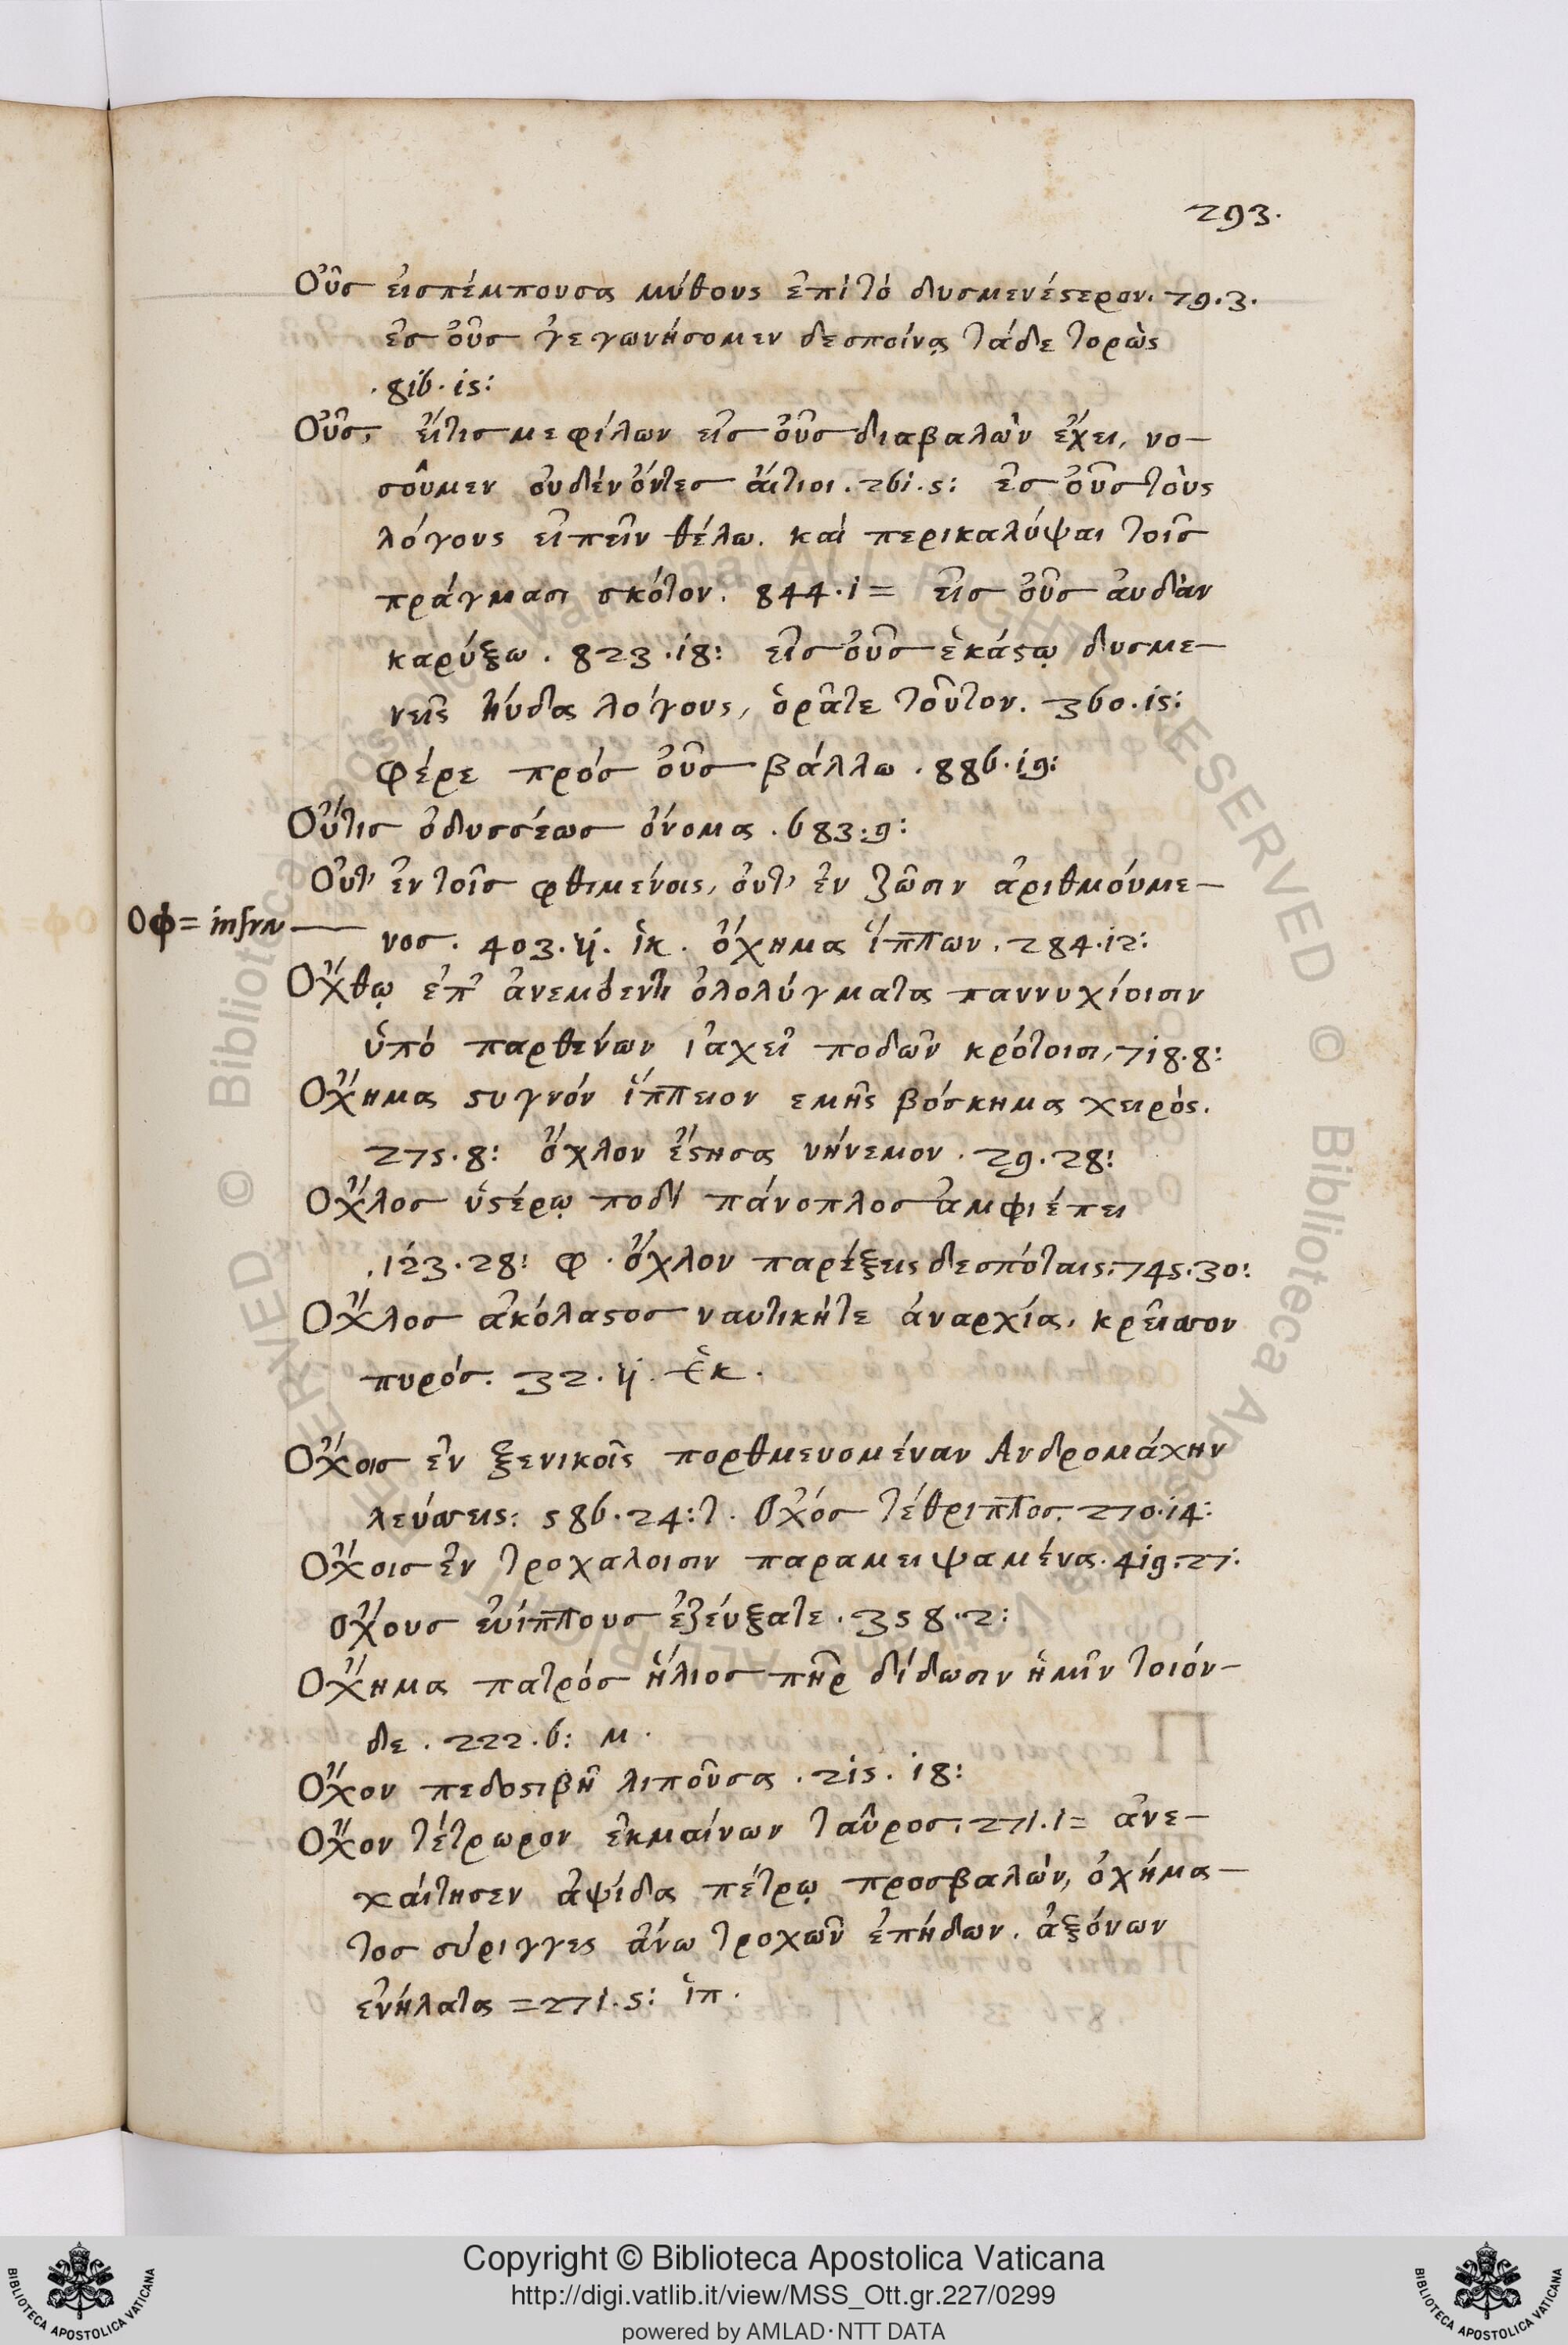 293.
Οὖς εἰσπέμπουσα μύθους ἐπὶ τὸ δυσμενέστερον. 79.3.
ἐς οὖς γεγωνήσομεν δεσποίνᾳ τάδε τορῶς
.816.15:
Οὖς, εἴ τις με φίλων εἰς οὖς διαβαλὼν ἔχει, νο-
σοῦμεν οὐδὲν ὄντες αἴτιοι. 261.5: ἐς οὖς τοὺς
λόγους εἰπεῖν θέλω. καὶ περικαλύψαι τοῖς
πράγμασι σκότον. 844.1= εἰς οὖς αὐδὰν
καρύξω. 823.18: εἰς οὖς ἑκάστῳ δυσμε-
νεῖς ηὔδα λόγους, ὁρᾶτε τοῦτον. 360.15:
φέρε πρὸς οὖς βάλλω. 886.19:
Οὔτις ὀδυσσέως ὄνομα. 683.9:
Οὔτ' ἐν τοῖς φθιμένοις, οὔτ' ἐν ζῶσιν ἀριθμούμε-
Οφ= infra
νος. 403. ἱκ. ὄχημα ἵππων. 284.12:
Ὄχθῳ ἐπ' ἀνεμόεντι ὀλολύγματα παννυχίοισιν
ὑπὸ παρθένων ἰαχεῖ ποδῶν κρότοισι, 718.8:
Ὄχημα στυγνὸν ἵππειον εμῆς βόσκημα χειρὸς.
275.8: ὄχλον ἔστησα νήνεμον. 29.28:
Ὄχλος ὑστέρῳ ποδὶ πάνοπλος ἀμφιέπει
.123.28: φ. ὄχλον παρέξεις δεσπόταις: 745.30:
Ὄχλος ἀκόλαστος ναυτική τε ἀναρχία, κρεῖσσον
πυρός. 32. ἑκ.
Ὄχοις ἐν ξενικοῖς πορθμευομέναν Ανδρομάχην
λεύσσεις: 586.24: τ. Ὀχός τέθριππος. 270.14:
Ὄχοις ἐν τροχαλοισιν παραμειψαμένα. 419.27:
ὄχους εὐίππους ἐζεύξατε. 358.2:
Ὄχημα πατρὸς ἥλιος πῆρ δίδωσιν ἡμῖν τοιόν-
δε. 222.6: μ.
Ὄχον πεδοστιβῆ λιποῦσα. 215.18:
Ὄχον τέτρωρον ἐκμαίνων ταῦρος. 271.1= ἀνε-
χαίτησεν ἁψίδα πέτρῳ προσβαλών, ὀχήμα-
τος σύριγγες ἄνω τροχῶν ἐπήδων. ἀξόνων
ἐνήλατα =271.5: ἱπ.
Copyright © Biblioteca Apostolica Vaticana
http://digi.vatlib.it/view/MSS_Ott.gr.227/0299
powered by AMLAD·NTT DATA